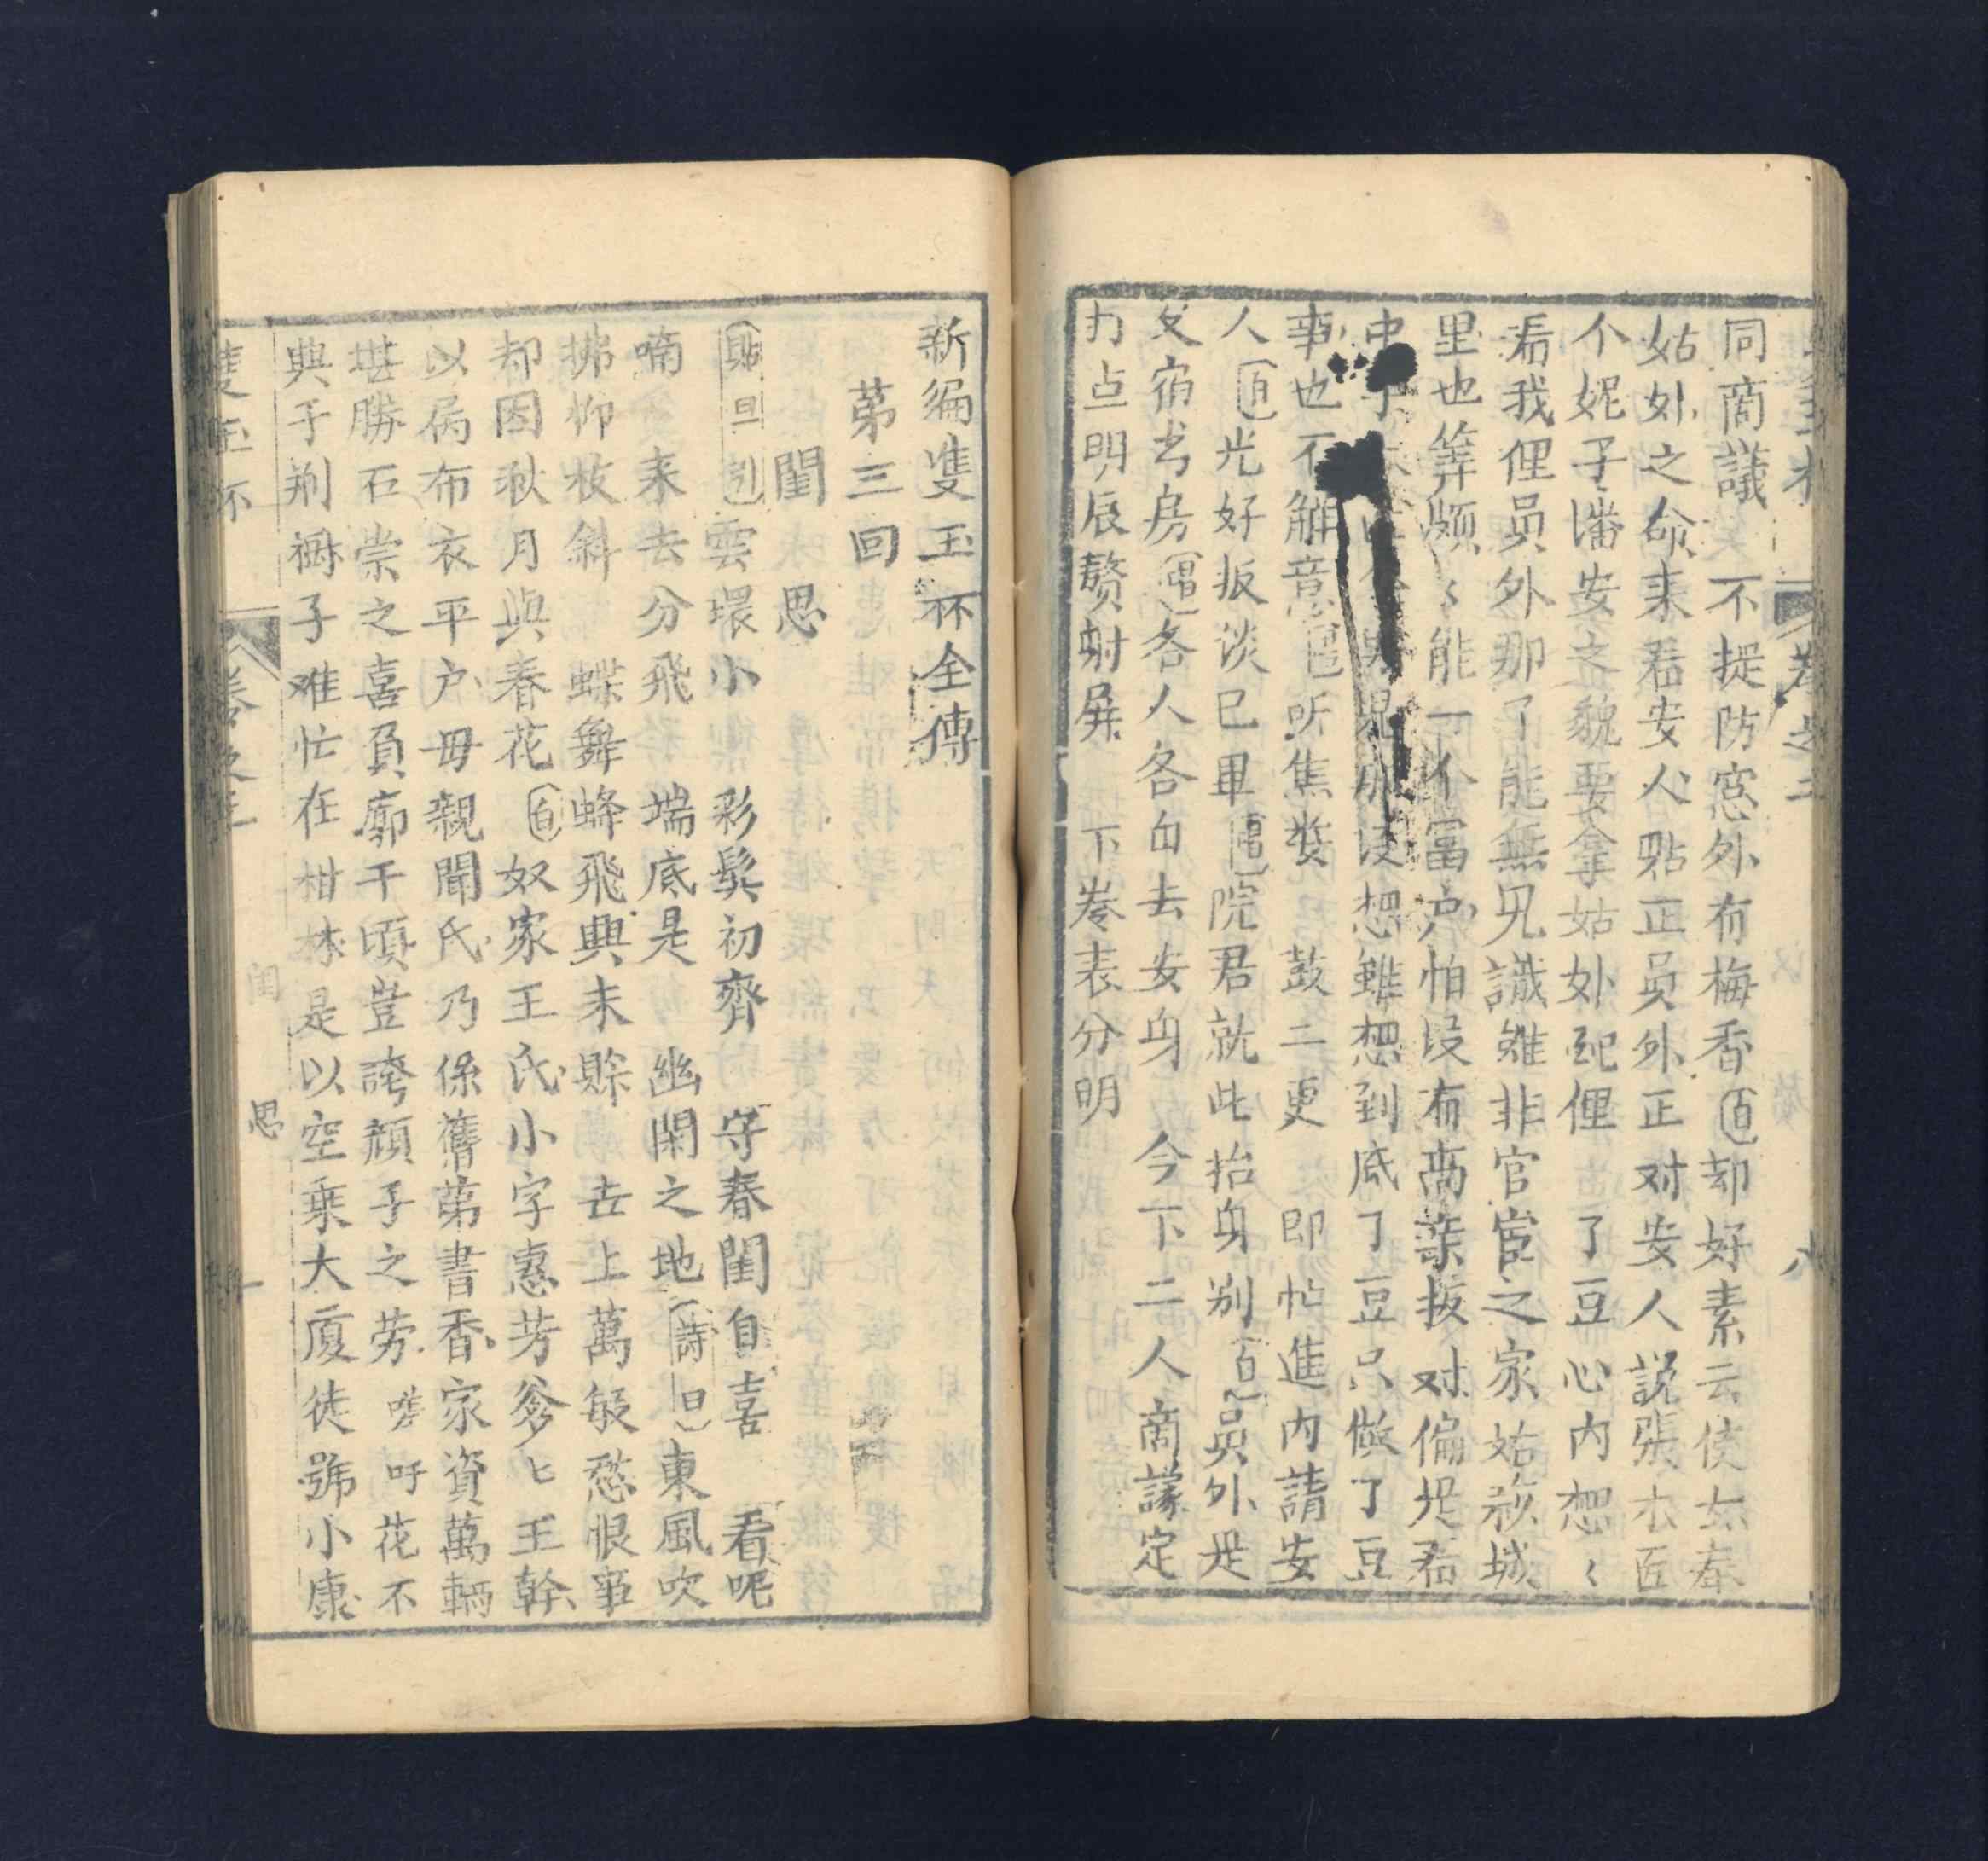 同啇議　不提防窓外有梅香（白）却好素云使女奉
姑妳之命来看安人點正員外正对安人説張木匠
个妮子潘安之貌要拿姑妳配俚了豆心内想〻
看我俚員外那了能無見識雖非官宦之家姑蘇城
里也筭頗〻能一个富户怕没有高亲扳对偏是看
中了
想雖想到底了豆只做了豆
事也不觧意（唱）听焦燥　鼓二更　即忙進内請安
人（白）光好扳谈已畢（唱）院君就此抬身别（白）員外是
夜宿书房（唱）各人各自去安身　今下二人商議定
打点明辰赘射屏　下卷表分明
卷之二
八
新編雙玉杯全傳
第三回
閨思
（貼旦引）雲環小　彩髩初齊　守春閨自喜　看呢
喃　来去分飛　端底是　幽閑之地（詩曰）東風吹
拂柳枝斜　蝶舞蜂飛興未賒　世上萬般愁恨事
却因秋月與春花（白）奴家王氏小字惠芳爹〻王幹
以為布衣平户母親聞氏乃係舊第書香家資萬輛
堪勝石崇之喜負廓千頃豈誇顔子之劳　嗟吁花不
與子荆褥子难忙在柑林是以空乘大廈徒號小康
雙玉杯
卷之三
閨　思
一